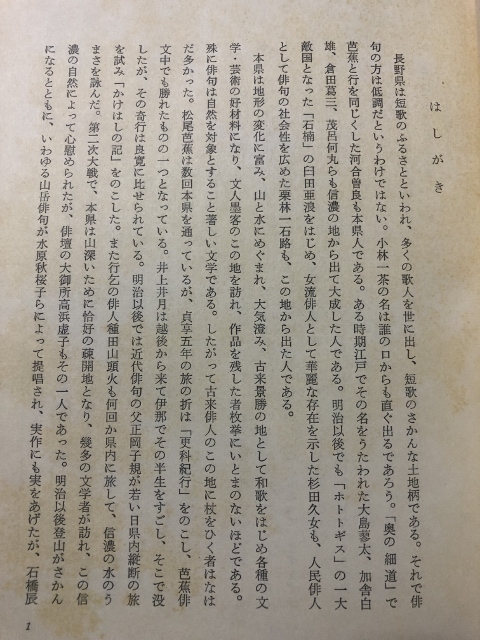 はしがき
長野県は短歌のふるさとといわれ、多くの歌人を世に出し、短歌のさかんな土地柄である。それで俳
句の方は低調だというわけではない。小林一茶の名は誰の口からも直ぐ出るであろう。「奥の細道」で
芭蕉と行を同じくした河合曽良も本県人である。ある時期江戸でその名をうたわれた大島蓼太、加舎白
雄、倉田葛三、茂呂何丸らも信濃の地から出て大成した人である。明治以後でも「ホトトギス」の一大
敵国となった「石楠」の臼田亜浪をはじめ、女流俳人として華麗な存在を示した杉田久女も、人民俳人
として俳句の社会性を広めた栗林一石路も、この地から出た人である。
本県は地形の変化に富み、山と水にめぐまれ、大気澄み、古来景勝の地として和歌をはじめ各種の文
学・芸術の好材料になり、文人墨客のこの地を訪れ、作品を残した者枚挙にいとまのないほどである。
殊に俳句は自然を対象とすること著しい文学である。したがって古来俳人のこの地に杖をひく者はなは
だ多かった。松尾芭蕉は数回本県を通っているが、貞享五年の旅の折は「更科紀行」をのこし、芭蕉俳
文中でも勝れたものの一つとなっている。井上井月は越後から来て伊那でその半生をすごし、そこで没
したが、その奇行は良寛に比せられている。明治以後では近代俳句の父正岡子規が若い日県内縦断の旅
を試み「かけはしの記」をのこした。また行乞の俳人種田山頭火も何回か県内に旅して、信濃の水のう
まさを詠んだ。第二次大戦で、本県は山深いために恰好の疎開地となり、幾多の文学者が訪れ、この信
濃の自然によって心慰められたが、俳壇の大御所高浜虚子もその一人であった。明治以後登山がさかん
になるとともに、いわゆる山岳俳句が水原秋桜子らによって提唱され、実作にも実をあげたが、石橋辰
1